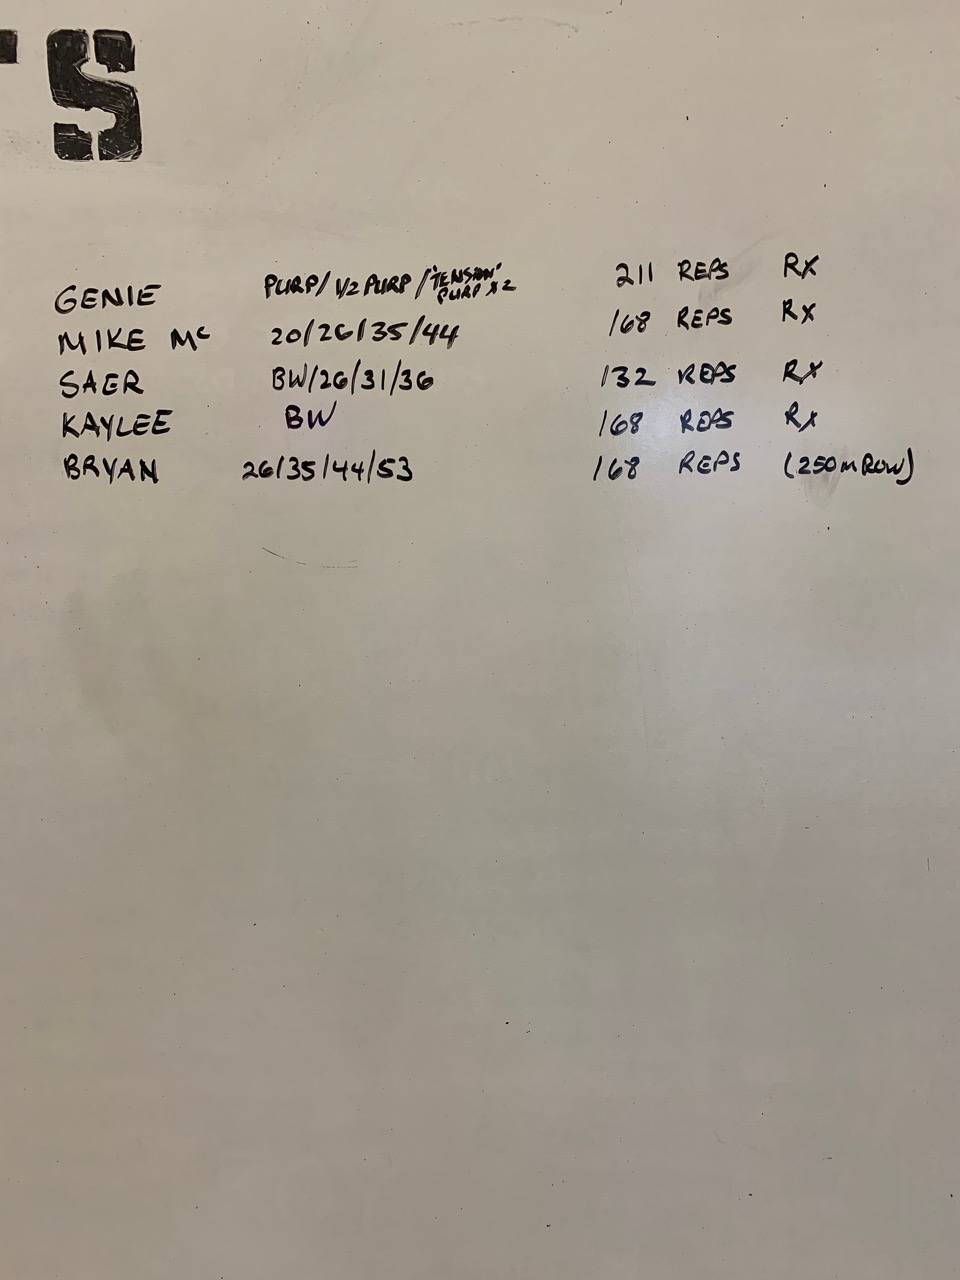 TS
GENIE PURP/ 1/2 PURP / "TENSION" PURP x2 211 REPS RX
MIKE Mc 20/26/35/44 168 REPS RX
SAER BW/26/31/36 132 REPS RX
KAYLEE BW 168 REPS RX
BRYAN 26/35/44/53 168 REPS (250m ROW)